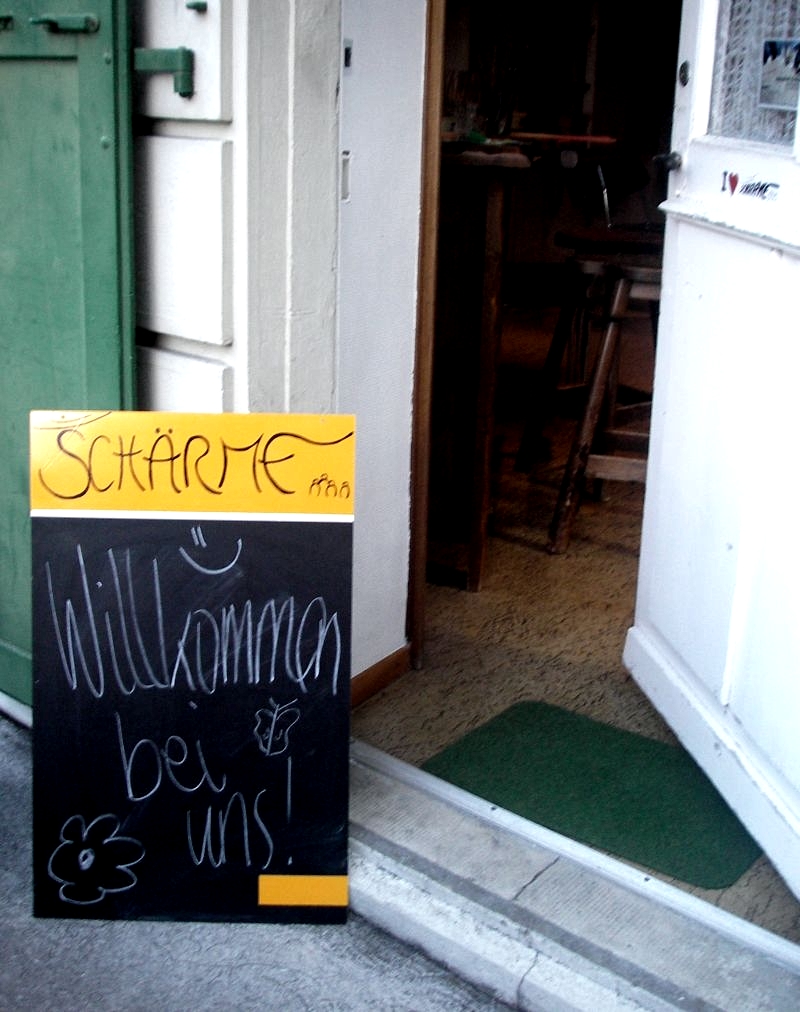 SCHÄRME
Willkommen
bei
uns!
I ♥ SCHÄRME